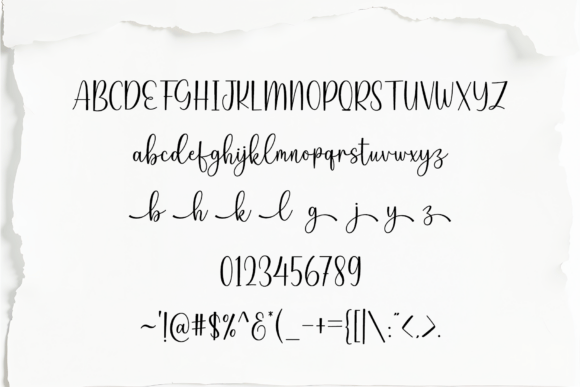 ABCDEFGHIJKLMNOPQRSTUVWXYZ
abcdefghijklmnopqrstuvwxyz
b h k l g j y z
0123456789
~'!@#$%^&*(_-+={[|\:"<,>.